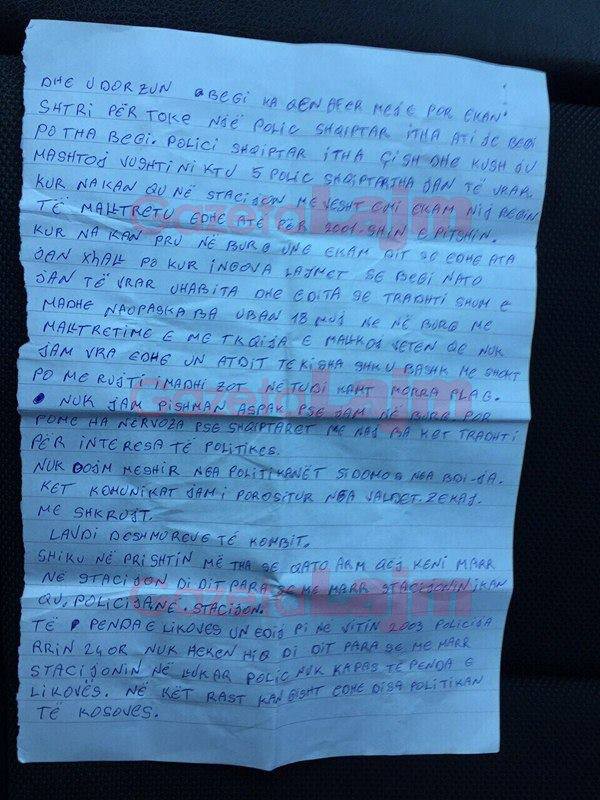 DHE UDORZUN BEGI KA QEN AFER MEJE POR EKAN
SHTRI PËR TOKE NJË POLIC SHQIPTAR ITHA ATI JE BEGI
PO THA BEGI. POLICI SHQIPTAR ITHA ÇISH DHE KUSH JU
MASHTOJ VUSHTI NI KTU 5 POLIC SHQIPTAR THA JAN TË VRAR.
KUR NA KAN QU NË STACIJON ME VESHT EMI EKAM NIJ BEGIN
TË MALLTRETU EDHE ATË PËR 2001-SHIN E PITSHIN.
KUR NA KAN PRU NË BURG UNE EKAM DIT SE EDHE ATA
JAN XHALL PO KUR INGOVA LAJMET SE BEGI NATO
JAN TË VRAR UHABITA DHE EDITA SE TRADHTI SHUM E
MADHE NAOPASKA BA UBAN 18 MUJ NE NË BURG ME
MALLTRETIME E ME TKQIJA E MALLKOJ VETEN QE NUK
JAM VRA EDHE UN ATDIT TE KISHA SHKU BASHK ME SHOKT
PO ME RUJTI IMADHI ZOT NETUDI KAMT MORRA PLAG.
NUK JAM PISHMAN ASPAK PSE JAM NË BURG. POR
POME HA NERVOZA PSE SHQIPTARET ME NAJ BA KET TRADHTI
PËR INTERESA TË POLITIKES.
NUK DOJM MESHIR NGA POLITIKANËT SIDOMOS NGA BDI-JA.
KET KOMUNIKAT JAM I POROSITUR NGA VALDET. ZEKAJ.
ME SHKRUJT.
LAVDI DESHMOREVE TË KOMBIT.
SHIKU NË PRISHTIN MË THA SE QATO ARM QEJ KENI MARR
NË STACIJON DI DIT PARA SE ME MARR STACIJONIN IKAN
QU, POLICIJA NË. STACIJON.
TË PENDA E LIKOVES UN EDIJ PI NE VITIN 2003 POLICIJA
RRIN 24 OR NUK HEKEN HIQ DI DIT PARA SE ME MARR
STACIJONIN NË LLUKAR POLIC NUK KAPAS TE PENDA E
LIKOVËS. NË KËT RAST KAN GISHT EDHE DISA POLITIKAN
TË KOSOVËS.
Gazeta Lajm
Gazeta Lajm
Gazeta Lajm